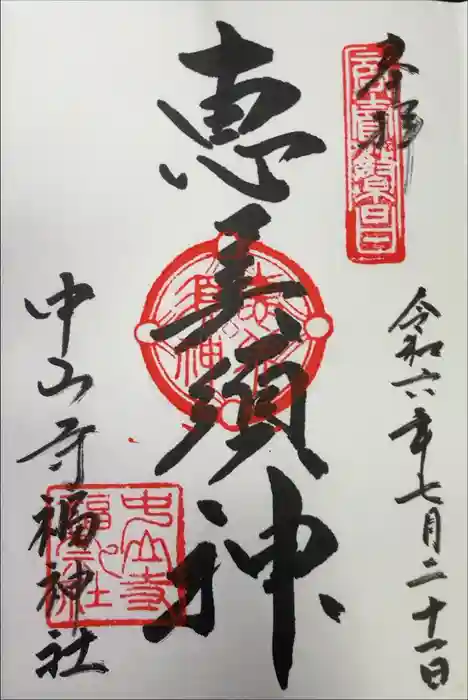 奉拝
令和六年七月二十一日
恵美須神
中山寺福神社